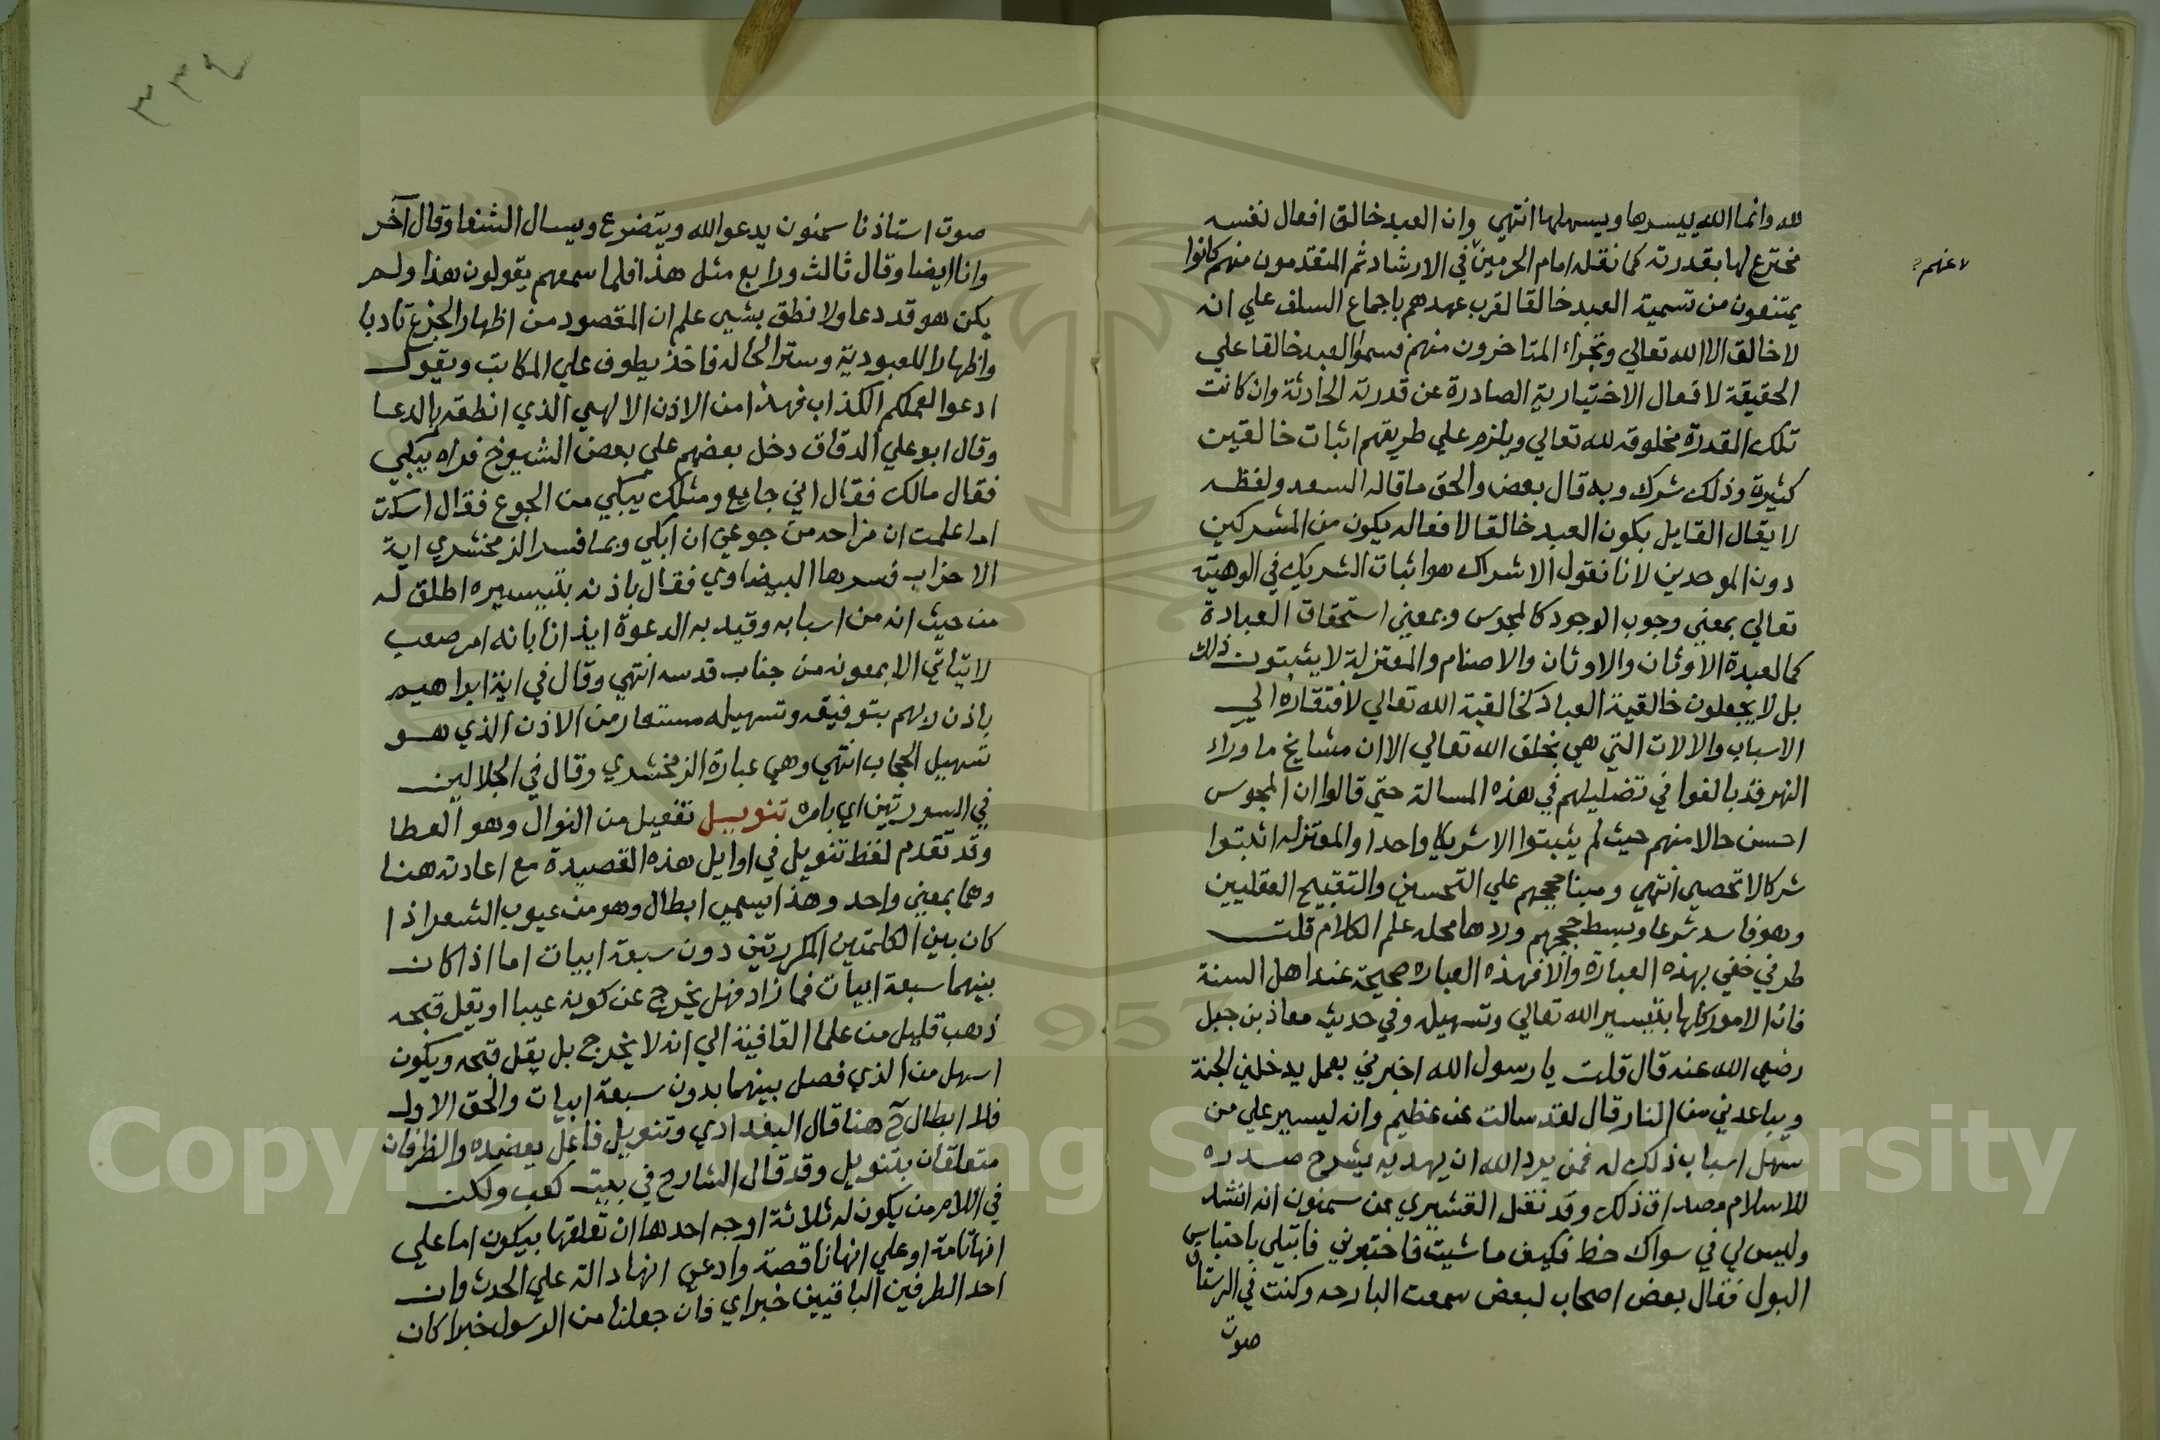 لله وانما الله ييسرها ويسهلها انتهي وان العبد خالق افعال نفسه
مخترع لها بقدرته كما نقله امام الحرمين في الارشاد ثم المتقدمون منهم كانوا
لا عنهم
يمتنعون من تسمية العبد خالقا لقرب عهدهم باجماع السلف علي انه
لا خالق الا الله تعالي وتجراء المتاخرون منهم فسموا العبد خالقا علي
الحقيقة لافعال الاختيارية الصادرة عن قدرته الحادثة وان كانت
تلك القدرة مخلوقه لله تعالي ويلزم علي طريقهم اثبات خالقين
كثيرة وذلك شرك وبه قال بعض والحق ما قاله السعد ولفظه
لا يقال القايل بكون العبد خالقا لافعاله يكون من المشركين
دون الموحدين لانا نقول الاشراك هو اثبات الشريك في الوهيته
تعالي بمعني وجوب الوجود كالمجوس وبمعني استحقاق العبادة
كما لعبدة الاوثان والاوثان والاصنام والمعتزلة لا يثبتون ذلك
بل لا يجعلون خالقية العباد كخالقية الله تعالي لافتقاره الي
الاسباب والالات التي هي بخلق الله تعالي الا ان مشايخ ما وراء
النهر قد بالغوا في تضليلهم في هذه المسالة حتي قالوا ان المجوس
احسن حالا منهم حيث لم يثبتوا الا شريكا واحدا والمعتزله اثبتوا
شركا لا تحصي انتهي ومبنا حججهم علي التحسين والتقبيح العقليين
وهو فاسد شرعا وبسط حججهم وردها محله علم الكلام قلت
طرفي خفي بهذه العبارة والا فهذه العباره صحيحة عند اهل السنة
فان الامور كلها بتيسير الله تعالي وتسهيله وفي حديث معاذ بن جبل
رضي الله عنه قال قلت يا رسول الله اخبرني بعمل يدخلني الجنة
ويباعدني من النار قال لقد سالت عن عظيم وانه ليسير علي من
سهل اسباب ذلك له فمن يرد الله ان يهديه يشرح صدره
للاسلام مصداق ذلك وقد نقل القشيري عن سمنون انه انشد
وليس لي في سواك حظ فكيف ما شيت فاختبرني فابتلي باحتباس
البول فقال بعض اصحاب لبعض سمعت البارحه وكنت في الرستاق
صوت
٣٣٤
صوت استاذنا سمنون يدعو الله ويتضرع ويسال الشفا وقال آخر
وانا ايضا وقال ثالث ورابع مثل هذا فلما سمعهم يقولون هذا ولم
يكن هو قد دعا ولا نطق بشي علم ان المقصود من اظهار الجزع تادبا
واظهارا للعبودية وستر الحاله فاخذ يطوف علي المكاتب ويقول
ادعوا لعمكم الكذاب فهذا من الاذن الالهي الذي انطقه بالدعا
وقال ابو علي الدقاق دخل بعضهم علي بعض الشيوخ فراه يبكي
فقال مالك فقال اني جايع ومثلك يبكي من الجوع فقال اسكت
اما علمت ان مراده من جوعي ان ابكي وبما فسر الزمخشري اية
الاحزاب فسرها البيضاوي فقال باذنه بتيسيره اطلق له
من حيث انه من اسبابه وقيد به الدعوة ايذانا بانه امر صعب
لا يتاتي الا بمعونه من جناب قدسه انتهي وقال في اية ابراهيم
باذن ربهم بتوفيقه وتسهيله مستعار من الاذن الذي هو
تسهيل الحجاب انتهي وهي عبارة الزمخشري وقال في الجلالين
في السورتين اي بامره تنويل تفعيل من النوال وهو العطا
وقد تقدم لفظ تنويل في اوايل هذه القصيدة مع اعادته هنا
وهما بمعني واحد وهذا يسمي ابطال وهو من عيوب الشعر اذا
كان بين الكلمتين المكررتين دون سبعة ابيات اما اذا كان
بينهما سبعة ابيات فما زاد فهل يخرج عن كونه عيبا او يقل قبحه
ذهب قليل من علما القافية الي انه لا يخرج بل يقل قبحه ويكون
اسهل من الذي فصل بينهما بدون سبعة ابيات والحق الاول
فلا ابطال ح هنا قال البغدادي وتنويل فاعل يعضده والظرفان
متعلقان بتنويل وقد قال الشارح في بيت كعب ولكن
في اللام من يكون له ثلاثة اوجه احدها ان تعلقها بيكون اما علي
انها تامة او علي انها ناقصة وادعي انها دالة علي الحدث وان
احد الطرفين الباقيين خبراي فان جعلنا من الرسول خبرا كان